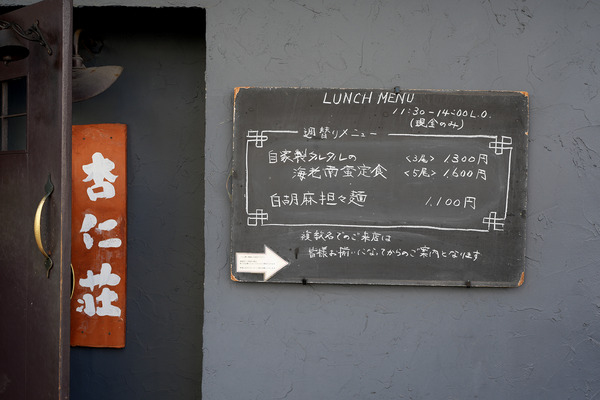 杏仁荘
LUNCH MENU
11:30-14:00 L.O.
(現金のみ)
週替りメニュー
自家製タルタルの <3尾> 1300円
海老南蛮定食 <5尾> 1,600円
白胡麻担々麺 1,100円
複数名でのご来店は
皆様お揃いになってからのご案内となります